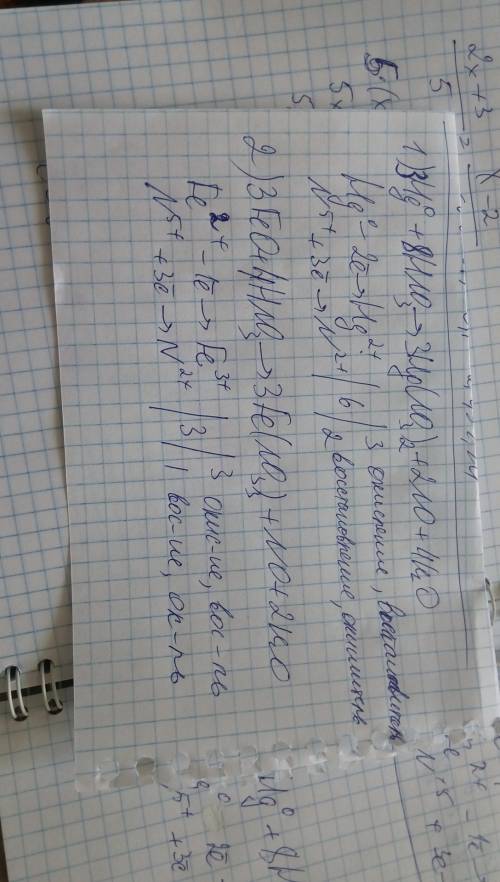 1) 3Hg⁰ + 8HNO₃ → 3Hg(NO₃)₂ + 2NO + 4H₂O
Hg⁰ - 2ē → Hg²⁺ | 6 | 3 окисление, восстановитель
N⁵⁺ + 3ē → N²⁺ | 2 восстановление, окислитель
2) 3FeO + 10HNO₃ → 3Fe(NO₃)₃ + NO +
Fe²⁺ - 1ē → Fe³⁺ | 3 | 3 окис-ие, вос-ль
N⁵⁺ + 3ē → N²⁺ | 1 вос-ие, ок-ль
2x + 3
5
=
x - 2
5(x
5x
5
Hg⁰ + 8H
2ē
5+ + 3ē
2+ - 1ē
N⁺⁵ + 3ē